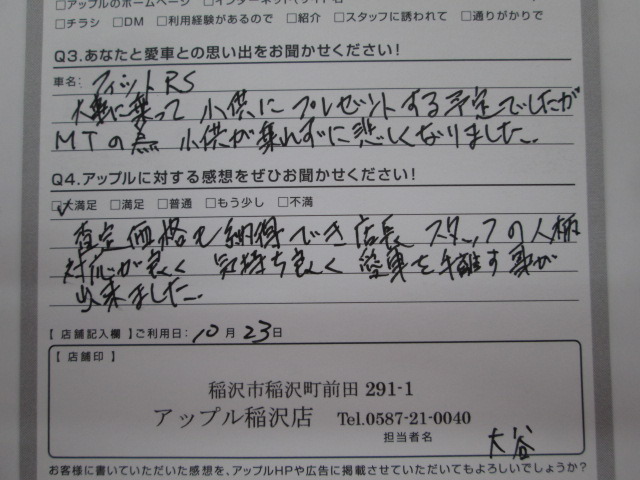 □アップルのホームページ □インターネット(サイト名
□チラシ □DM □利用経験があるので □紹介 □スタッフに誘われて □通りがかりで
Q3.あなたと愛車との思い出をお聞かせください!
車名: フィットRS
大事に乗って 小供に プレゼントする予定でしたが
MTの為 小供が乗れずに悲しくなりました。
Q4.アップルに対する感想をぜひお聞かせください!
☑大満足 □満足 □普通 □もう少し □不満
査定価格も納得でき店長 スタッフの人柄
対応が良く 気持ち良く 愛車を手離す事が
出来ました。
【 店舗記入欄 】ご利用日: 10月 23日
【 店舗印 】
稲沢市稲沢町前田 291-1
アップル稲沢店 Tel.0587-21-0040
担当者名
大谷
お客様に書いていただいた感想を、アップルHPや広告に掲載させていただいてもよろしいでしょうか?